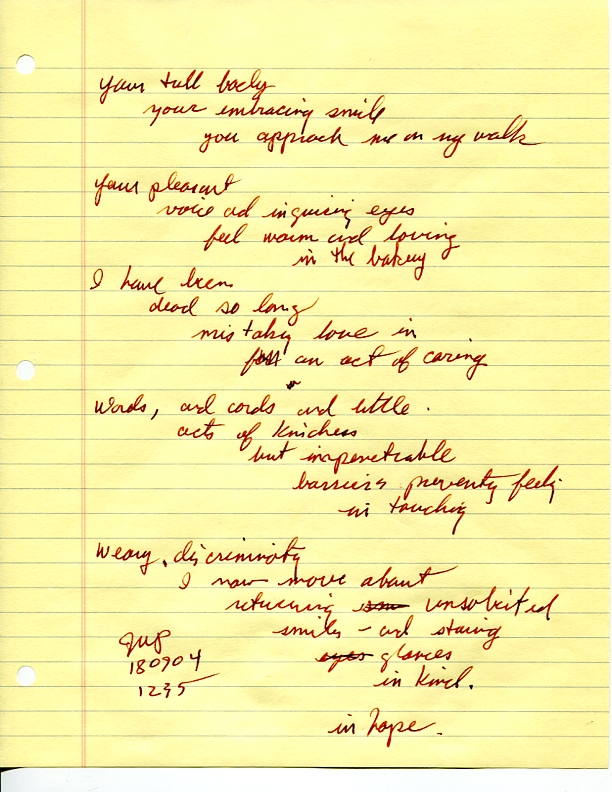 your tall body
your embracing smile
you approach me on my walk
your pleasant
voice and inquiring eyes
feel warm and loving
in the bakery
I have been
dead so long
mistaking love in
an act of caring
or
Words, and cards and little
acts of kindness
but impenetrable
barriers preventing feeling
in touching
Weary, discriminating
I now move about
returning unsolicited
smiles - and staring
eyes glances
in kind.
in hope.
180904
1235